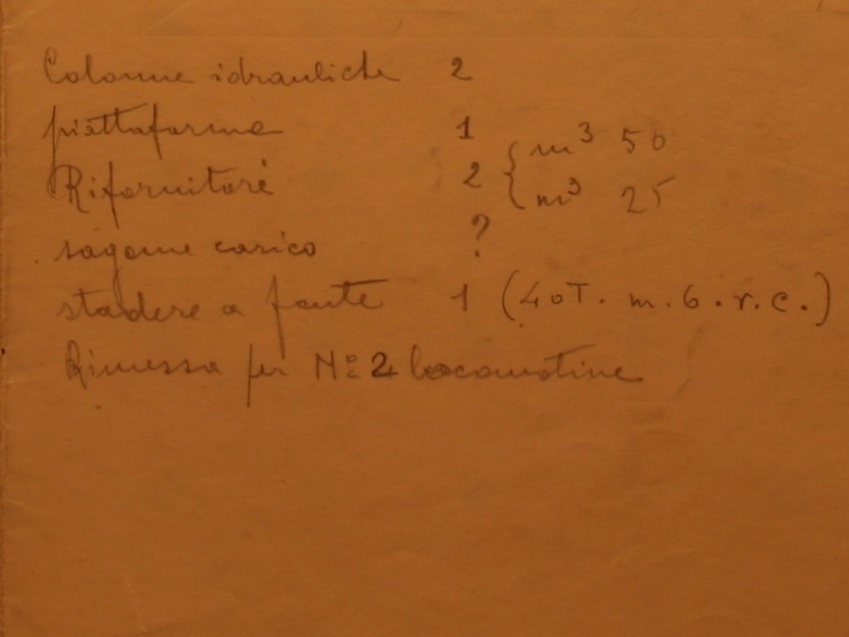 Colonne idrauliche 2
piattaforma 1
Rifornitori 2 { m³ 50
m³ 25
sagome carico ?
stadere a ponte 1 (40T. m. 6. r. c.)
Rimessa per N° 2 locomotive